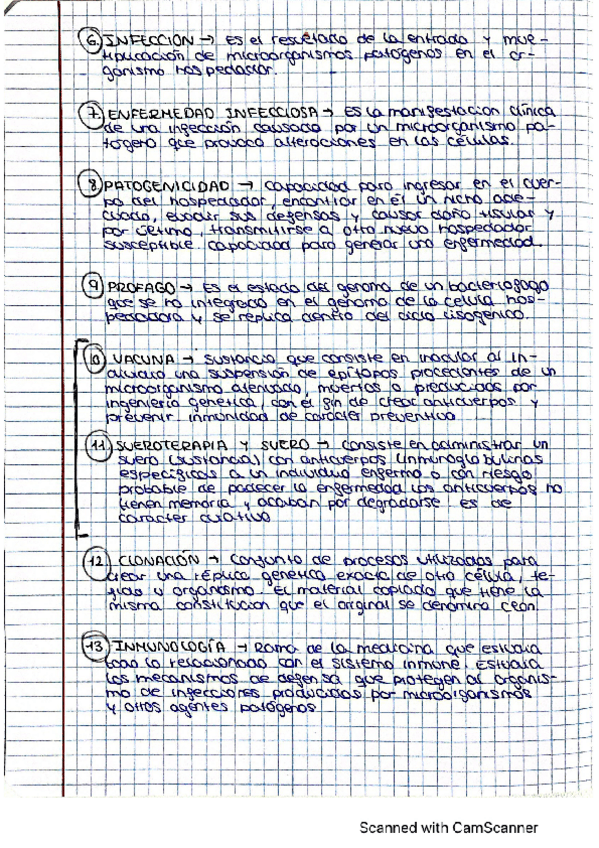 6 INFECCIÓN → Es el resultado de la entrada y mul-
tiplicación de microorganismos patógenos en el or-
ganismo hospedador.
7 ENFERMEDAD INFECCIOSA → Es la manifestación clínica
de una infección causada por un microorganismo pa-
tógeno que provoca alteraciones en las células.
8 PATOGENICIDAD → Capacidad para ingresar en el cuer-
po del hospedador, encontrar en él un nicho ade-
cuado, evadir sus defensas y causar daño tisular y
por último, transmitirse a otro nuevo hospedador
susceptible. Capacidad para generar una enfermedad.
9 PROFAGO → Es el estado del genoma de un bacteriófago
que se ha integrado en el genoma de la célula hos-
pedadora y se replica dentro del ciclo lisogénico.
10 VACUNA → Sustancia que consiste en inocular al in-
dividuo una suspensión de epítopos procedentes de un
microorganismo atenuado, muertos o producidos por
ingeniería genética, con el fin de crear anticuerpos y
prevenir. inmunidad de carácter preventivo
11 SUEROTERAPIA Y SUERO → Consiste en administrar un
suero (sustancia) con anticuerpos (inmunoglobulinas
específicas a un individuo enfermo o con riesgo
probable de padecer la enfermedad los anticuerpos no
tienen memoria y acaban por degradarse es de
carácter curativo
12 CLONACIÓN → Conjunto de procesos utilizados para
crear una réplica genética exacta de otra célula, te-
jido u organismo. El material copiado que tiene la
misma constitución que el original se denomina clon.
13 INMUNOLOGÍA → Rama de la medicina que estudia
todo lo relacionado con el sistema inmune. Estudia
los mecanismos de defensa que protegen al organis-
mo de infecciones producidas por microorganismos
y otros agentes patógenos
Scanned with CamScanner